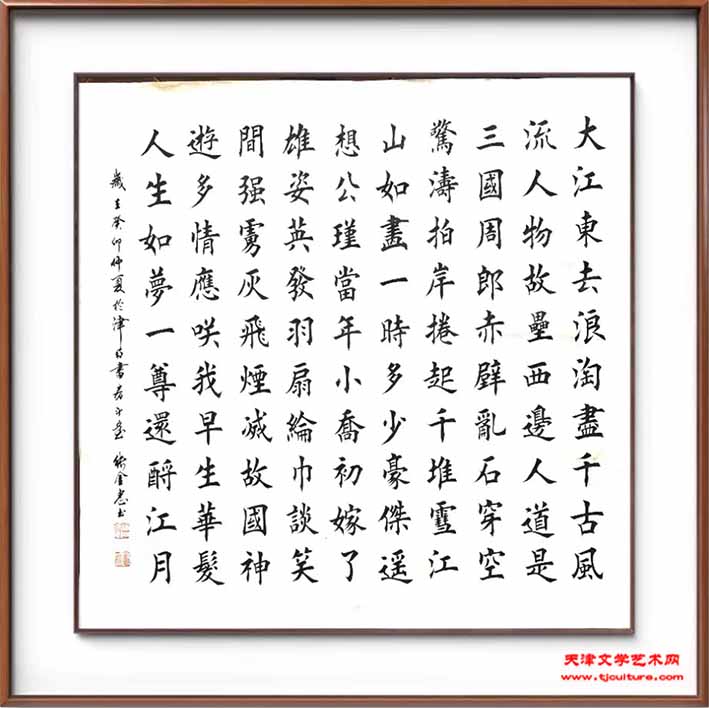 大江東去浪淘盡千古風
流人物故壘西邊人道是
三國周郎赤壁亂石穿空
驚濤拍岸捲起千堆雪江
山如畫一時多少豪傑遥
想公瑾當年小喬初嫁了
雄姿英發羽扇綸巾談笑
間强虜灰飛煙滅故國神
遊多情應咲我早生華髮
人生如夢一尊還酹江月
歲在癸卯仲夏於津 書 金忠書
天津文学艺术网
www.tjculture.com